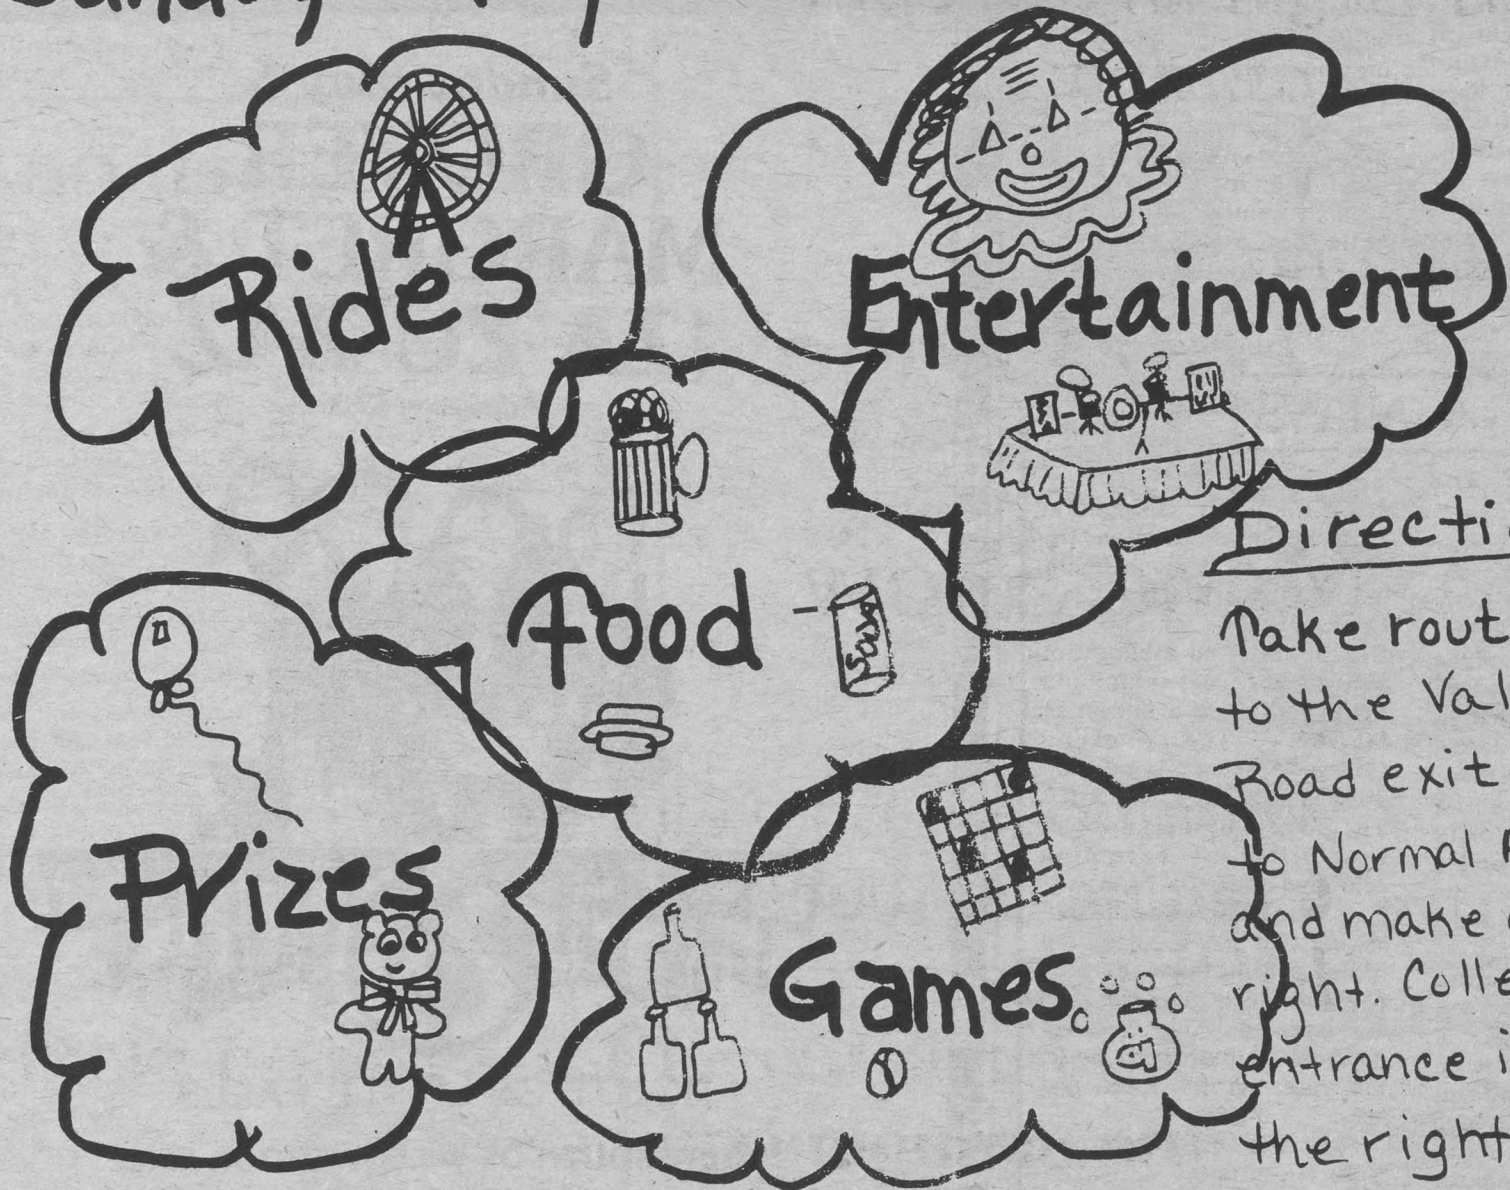 Rides
Entertainment
food
Soda
Prizes
Games
Directi
Take rout
to the Val
Road exit
to Normal
and make
right. Colle
entrance i
the right